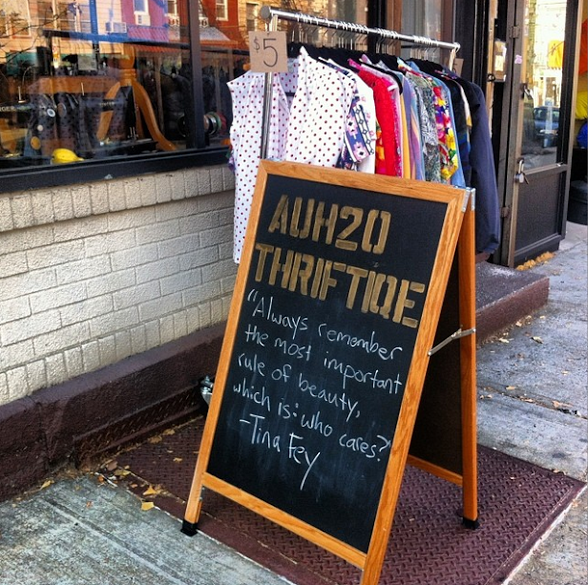 $5
AUH2O
THRIFTIQE
"Always remember
the most important
rule of beauty,
which is: who cares?"
-Tina Fey